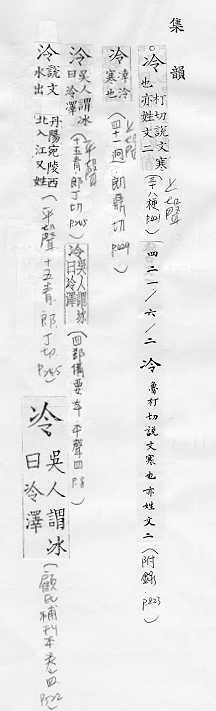 集韻
冷 打切說文寒也亦姓文二(上聲 三十八梗 P421)(四二一/六/二 冷 魯打切說文寒也亦姓文二(附錄 P823)
冷 冷寒也(上聲 四十一迥 朗鼎切 P429)
冷 吳人謂冰曰冷澤(平聲 十五青郎丁切 P245) 冷 吳人謂冰曰冷澤(四部備要本 平聲四 P8)
冷 說文水出丹陽宛陵西北入江又姓(平聲 十五青 郎丁切 P245) 冷 吳人謂冰曰冷澤(顧氏補刊本 四 P22)